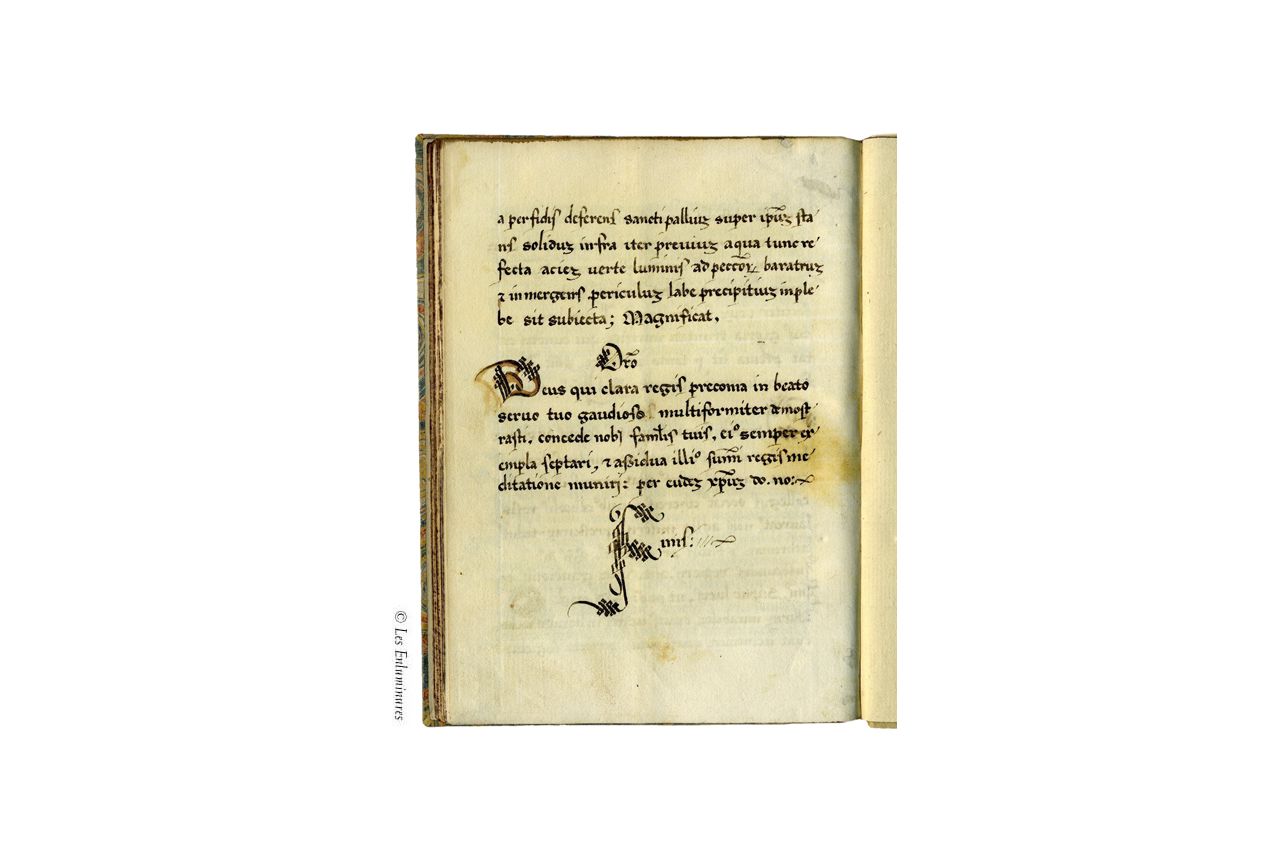 a perfidis deferens sancti palliuʒ super ip̄uʒ sta
ns soliduʒ infra iter preuiuʒ aqua tunc re
fecta acieʒ uerte luminis ad peccōꝝ baratruʒ
⁊ inmergens periculuʒ labe precipitiuʒ in ple
be sit subiecta; Magnificat.
Orō
Deus qui clara regis preconia in beato
seruo tuo gaudioso multiformiter demost
rasti. concede nobˢ faml̄is tuis. eiꝰ semper ex
empla sectari, ⁊ assidua illiꝰ sum̄i regis me
ditatione muniri: per eūdeʒ xp̄uʒ do. no:
Finis:
© Les Enluminures